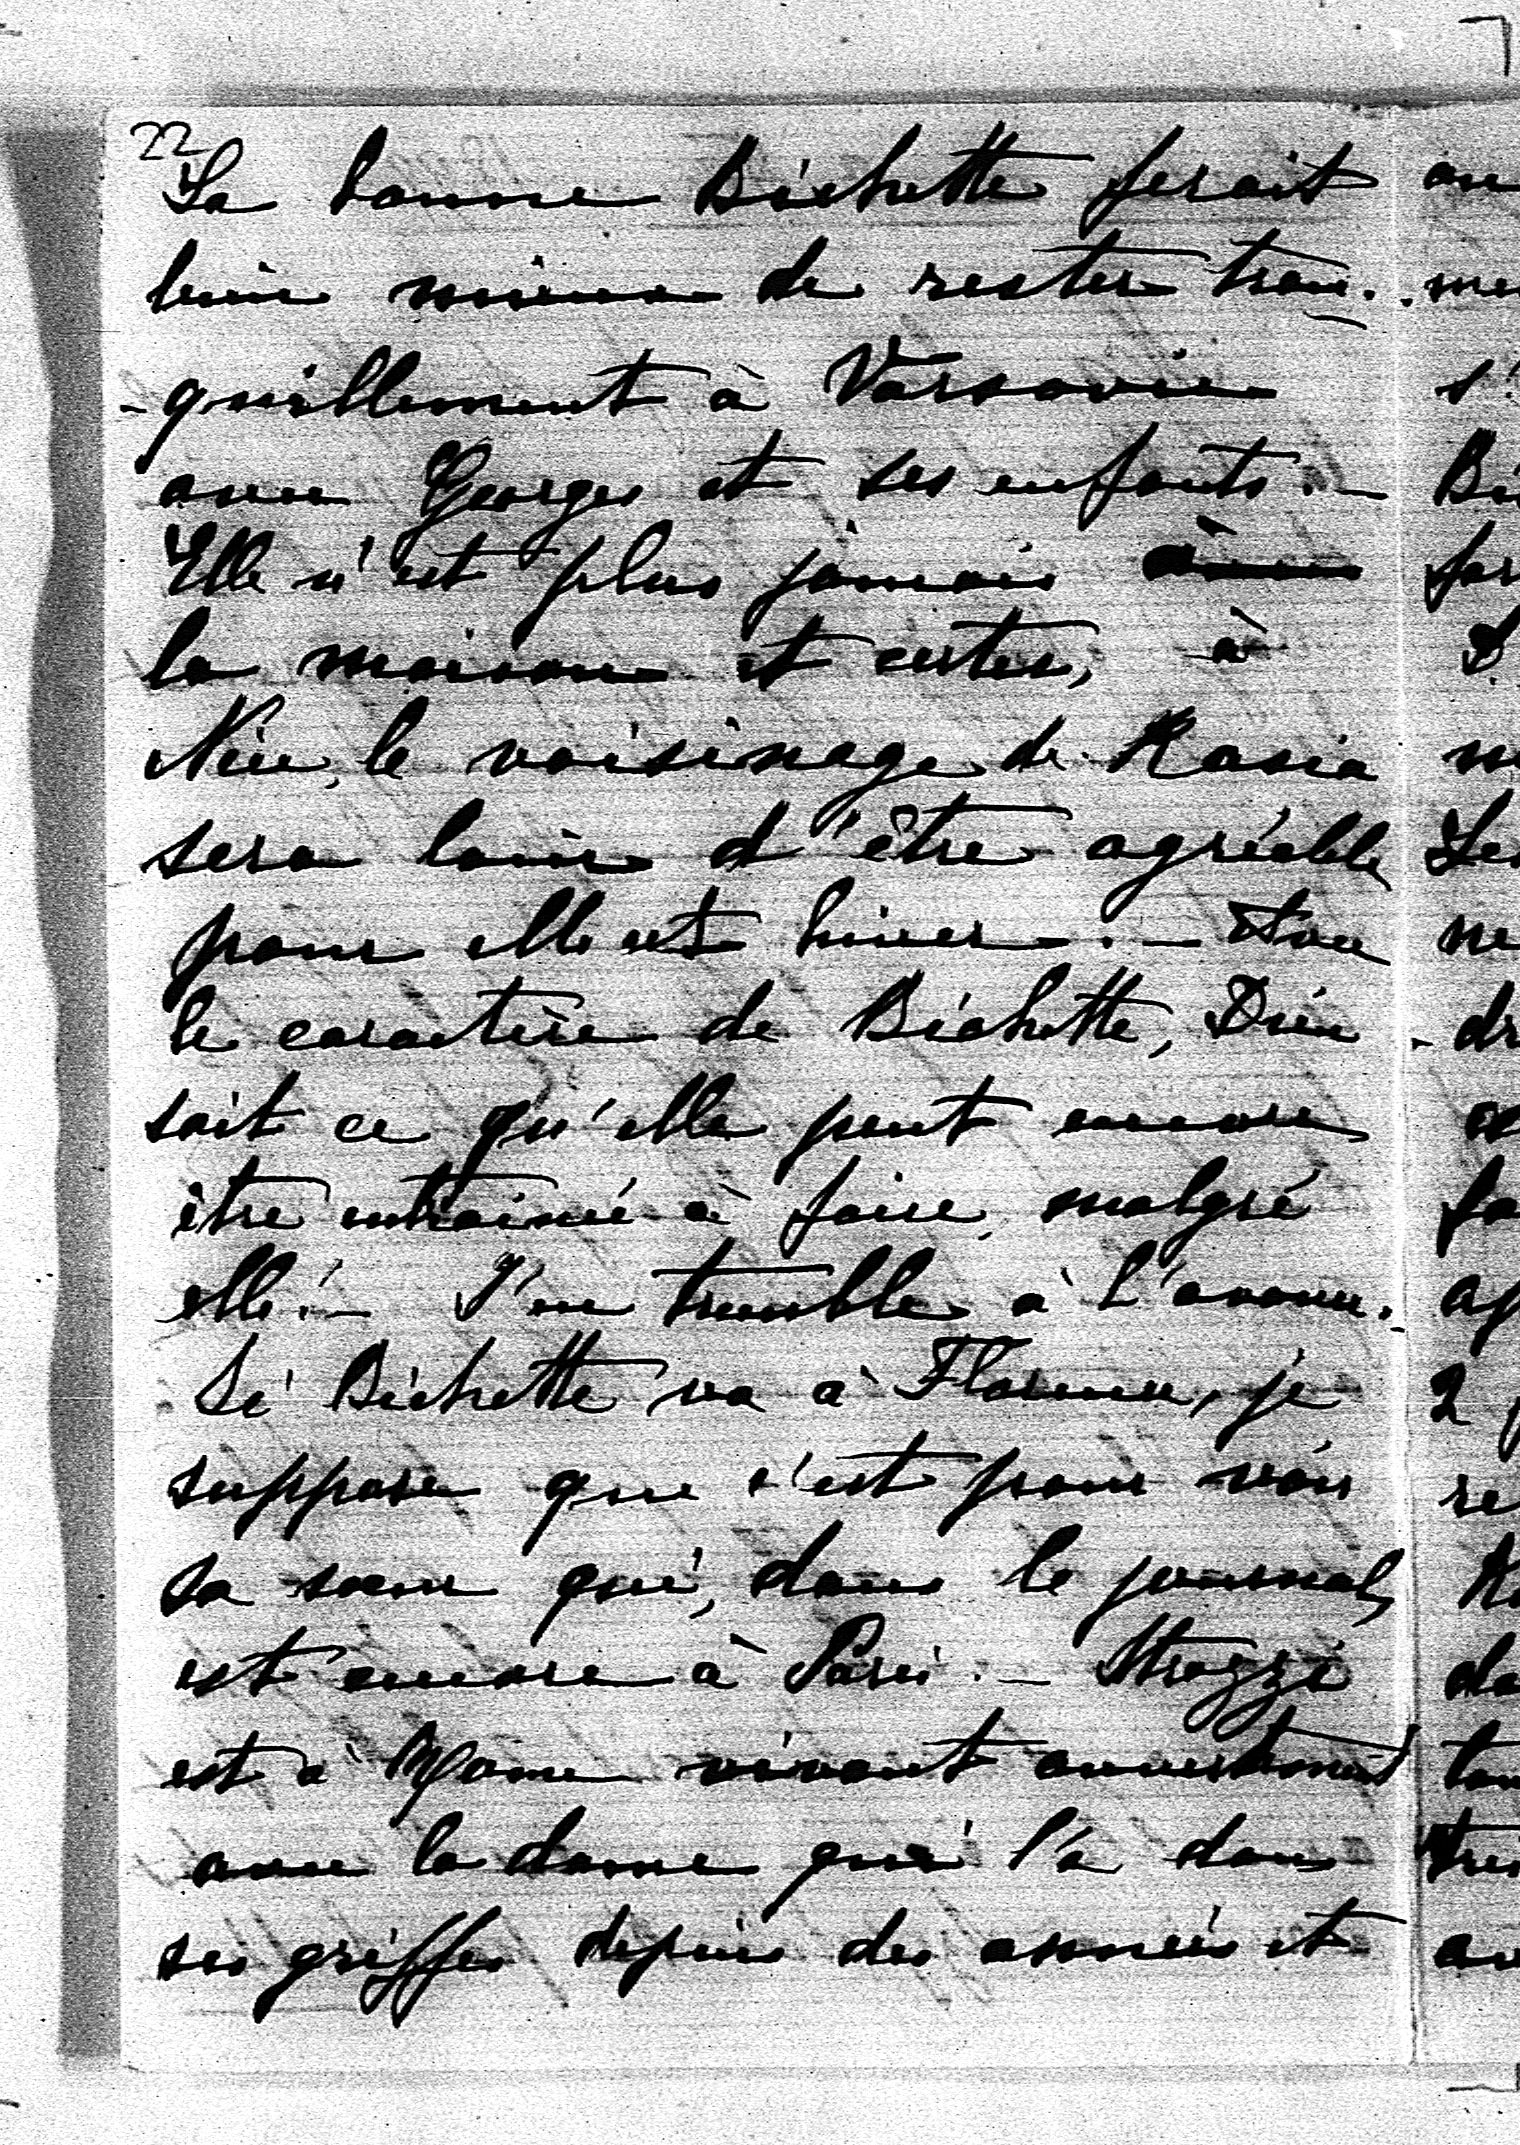 22
La bonne Bichette ferait
bien mieux de rester tran-
-quillement à Varsovie
avec Georges et ses enfants. —
Elle n'est plus jamais à
la maison et certes, à
Nice, le voisinage de Kasia
sera loin d'être agréable
pour elle cet hiver. — Avec
le caractère de Bichette, Dieu
sait ce qu'elle peut encore
être entrainée à faire, malgré
elle! — J'en tremble à l'avance.
Si Bichette va à Florence, je
suppose que c'est pour voir
sa sœur qui, dans le journal,
est encore à Paris. — Strozzi
est à Rome vivant ouvertement
avec la dame qui l'a dans
ses griffes depuis des années et